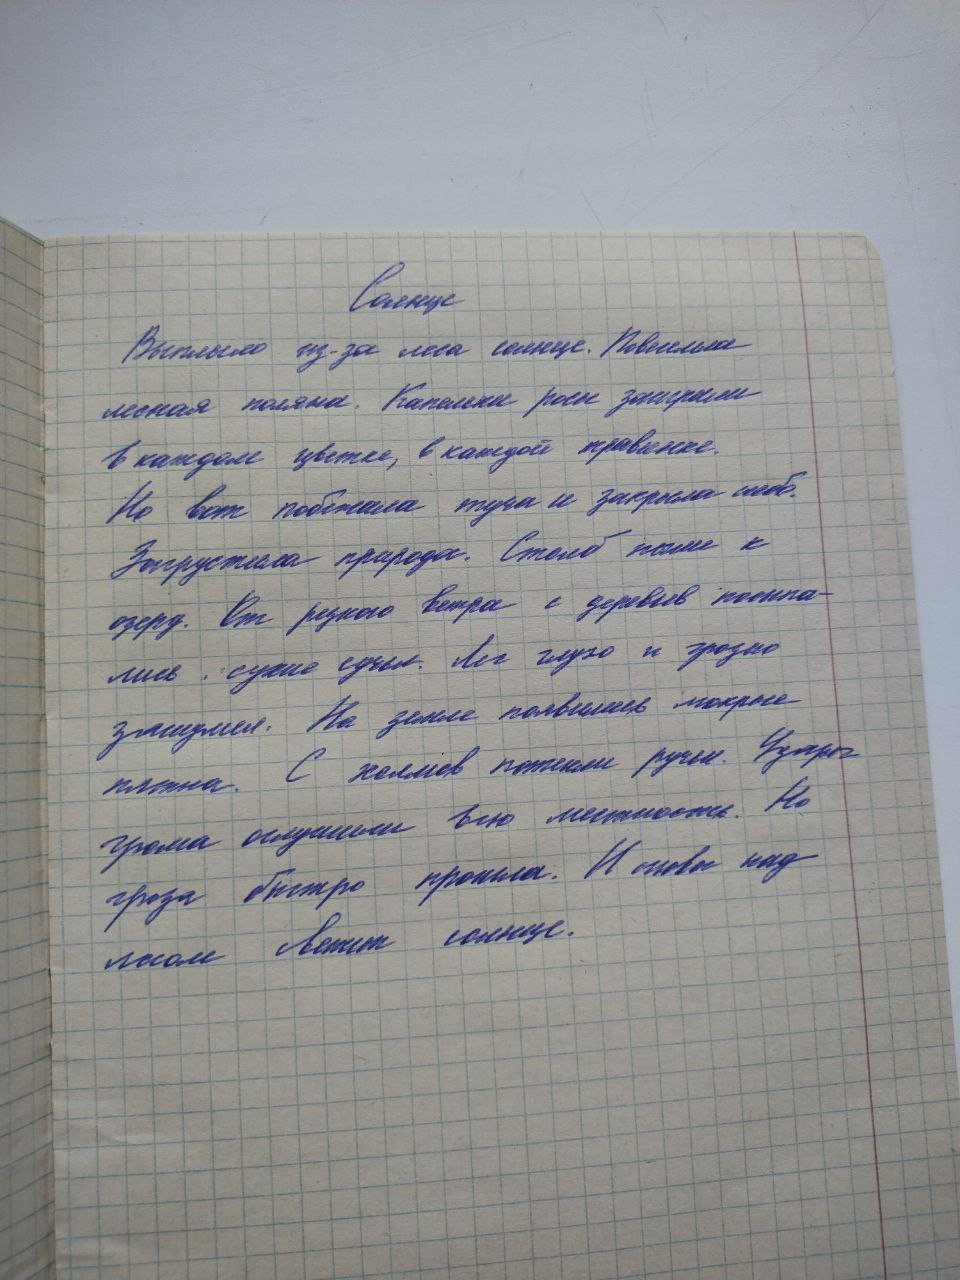 Солнце
Выплыло из-за леса солнце. Повеселела
лесная поляна. Капельки росы заиграли
в каждом цветке, в каждой травинке.
Но вот побежала туча и закрыла небо.
Загрустила природа. Столб пыли к
озеру. От резкого ветра с деревьев посыпа-
лись сухие сучья. Лес глухо и грозно
зашумел. На земле появились мокрые
пятна. С холмов потекли ручьи.
грома оглушили всю местность. Но
гроза быстро прошла. И снова над
лесом светит солнце.